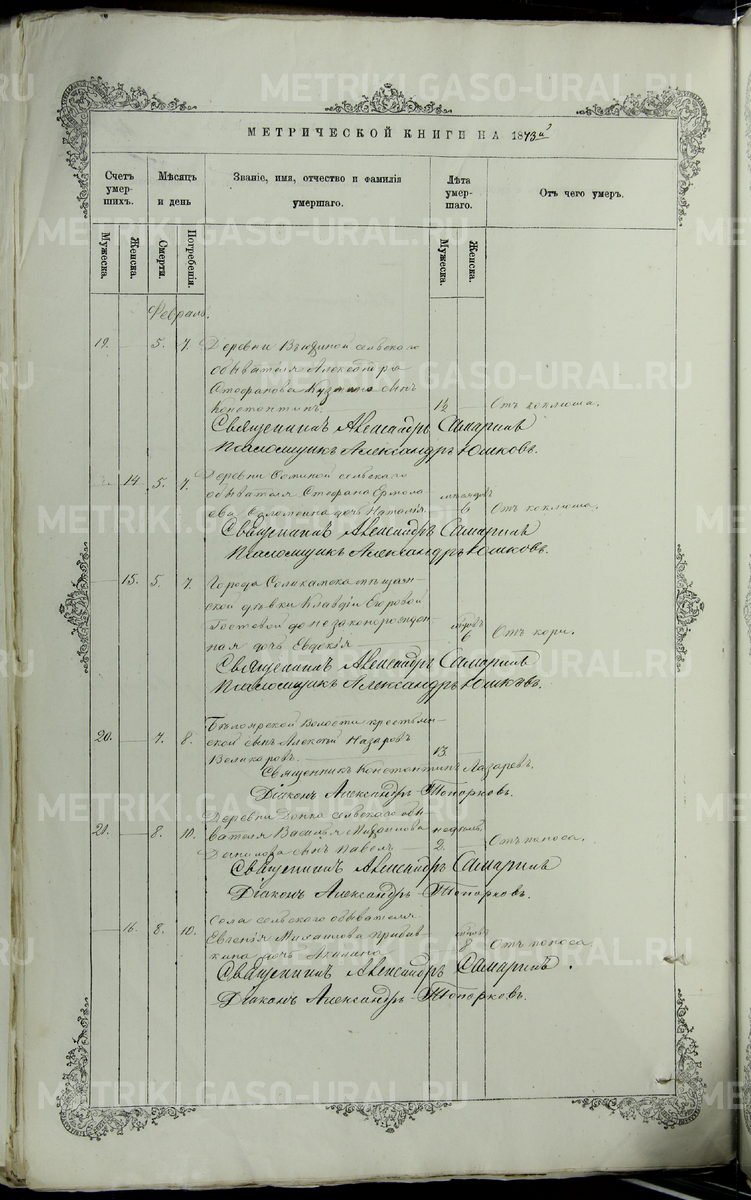 METRIKI.GASO-URAL.RU
МЕТРИЧЕСКОЙ КНИГИ НА 1873й
Счетъ умершихъ.
Мѣсяцъ и день
Званіе, имя, отчество и фамилія умершаго.
Лѣта умершаго.
Отъ чего умеръ.
Мужеска.
Женска.
Смерти.
Погребенія.
Мужеска.
Женска.
Февраль.
19. 5. 7. Деревни сельскаго
обывателя Александра
Стефанова сынъ
Константинъ. 1½ Отъ коклюша.
Священникъ Александръ Самаринъ
Псаломщикъ Александръ Юшковъ.
14 5. 7. Деревни сельскаго
обывателя Стефана Ермола
ева дочь Наталія. мѣсяцевъ 6 Отъ коклюша.
Священникъ Александръ Самаринъ
Псаломщикъ Александръ Юшковъ.
15. 5. 7. Города Соликамска мѣщан-
ской дѣвки Клавдіи Егоровой
незаконорожден-
ная дочь Евдокія 6 Отъ кори.
Священникъ Александръ Самаринъ
Псаломщикъ Александръ Юшковъ.
20. 7. 8. Волости крестьян-
ской сынъ Алексѣй Назаровъ
13
Священникъ Константинъ Лазаревъ.
Діаконъ Александръ Топорковъ.
21. 8. 10. Деревни сельскаго обы-
вателя Василья Михайлова недѣль
сынъ Павелъ 2. Отъ поноса.
Священникъ Александръ Самаринъ
Діаконъ Александръ Топорковъ.
16. 8. 10. Села сельскаго обывателя
Евгенія
дочь Акилина 8 Отъ поноса
Священникъ Александръ Самаринъ.
Діаконъ Александръ Топорковъ.